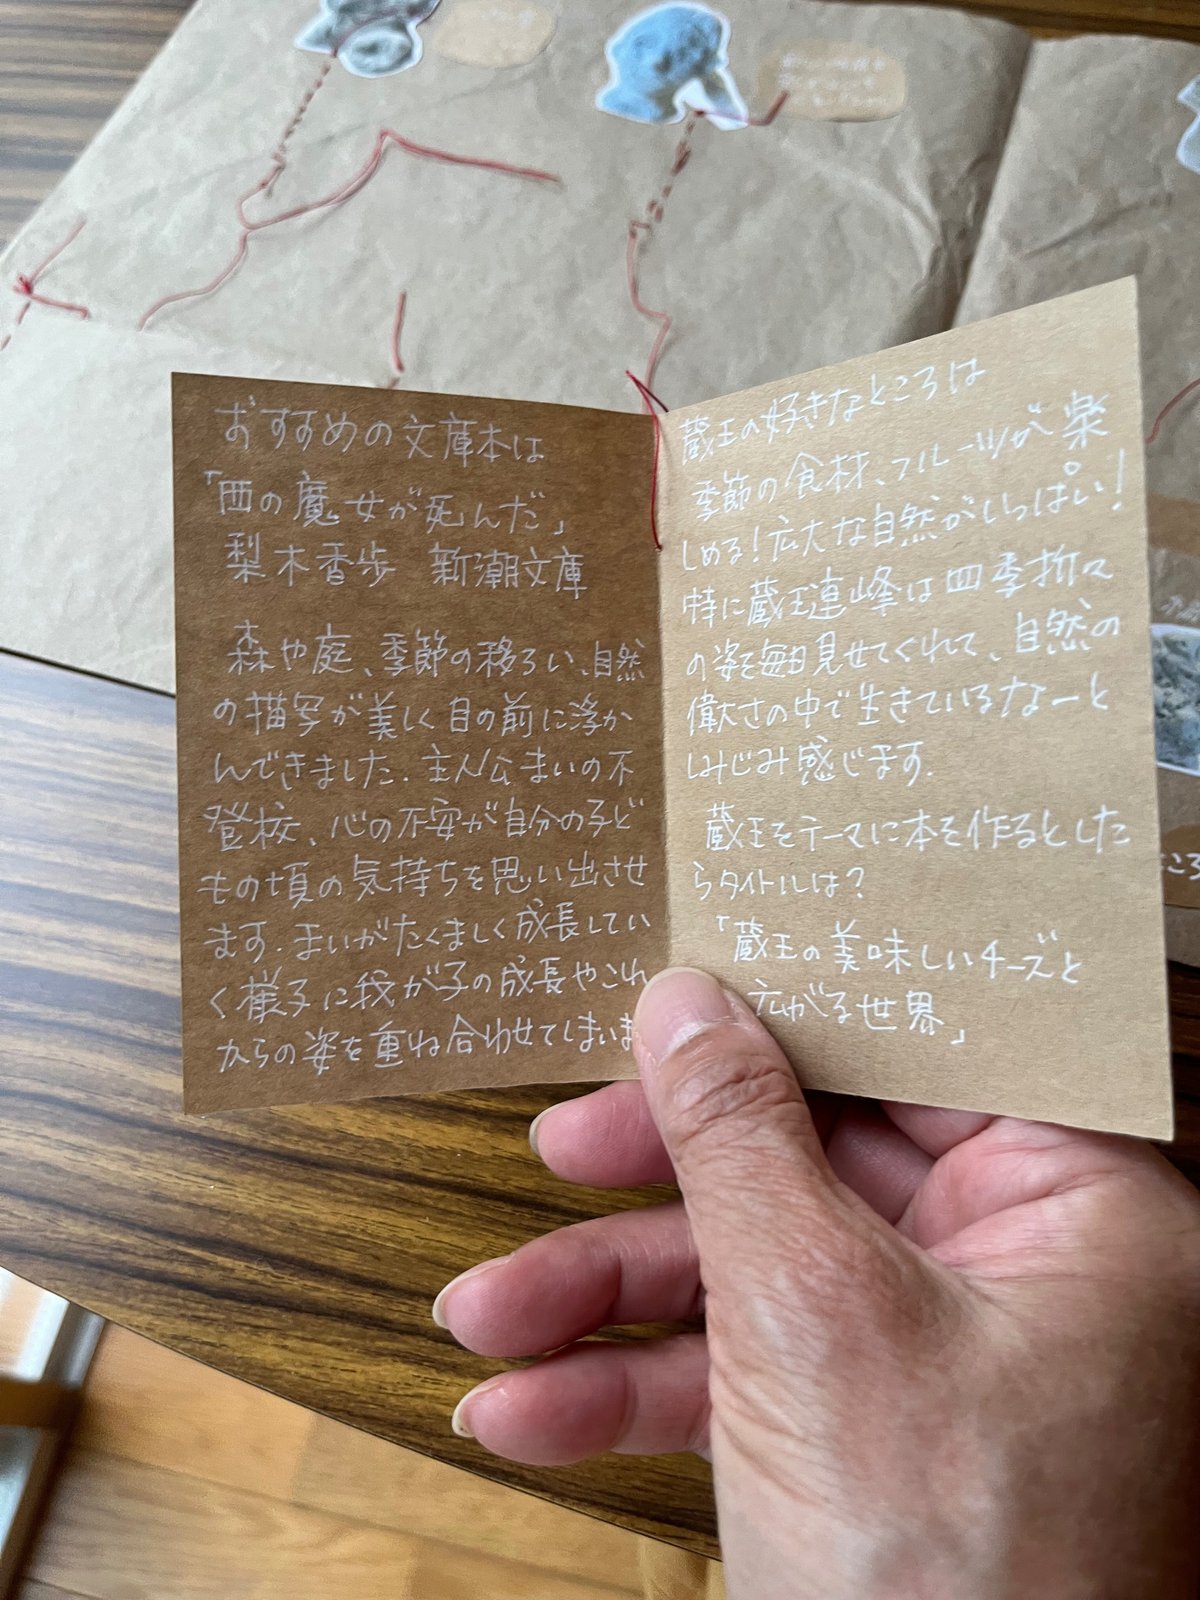 おすすめの文庫本は
「西の魔女が死んだ」
梨木香歩 新潮文庫
森や庭、季節の移ろい、自然
の描写が美しく目の前に浮か
んできました。主人公まいの不
登校、心の不安が自分の子ど
もの頃の気持ちを思い出させ
ます。まいがたくましく成長してい
く様子に我が子の成長やこれ
からの姿を重ね合わせてしまいま
蔵王の好きなところは
季節の食材、フルーツが楽
しめる！広大な自然がいっぱい！
特に蔵王連峰は四季折々
の姿を毎日見せてくれて、自然の
偉大さの中で生きているなーと
しみじみ感じます。
蔵王をテーマに本を作るとした
らタイトルは？
「蔵王の美味しいチーズと
広がる世界」